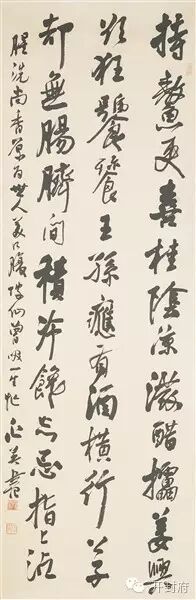 持螯更喜桂陰涼潑醋擂姜興
欲狂饕餮王孫應有酒橫行公子
却無腸臍間積冷饞忘忌指上沾
腥洗尚香原为世人美口腹坡仙曾咲一生忙
开封府